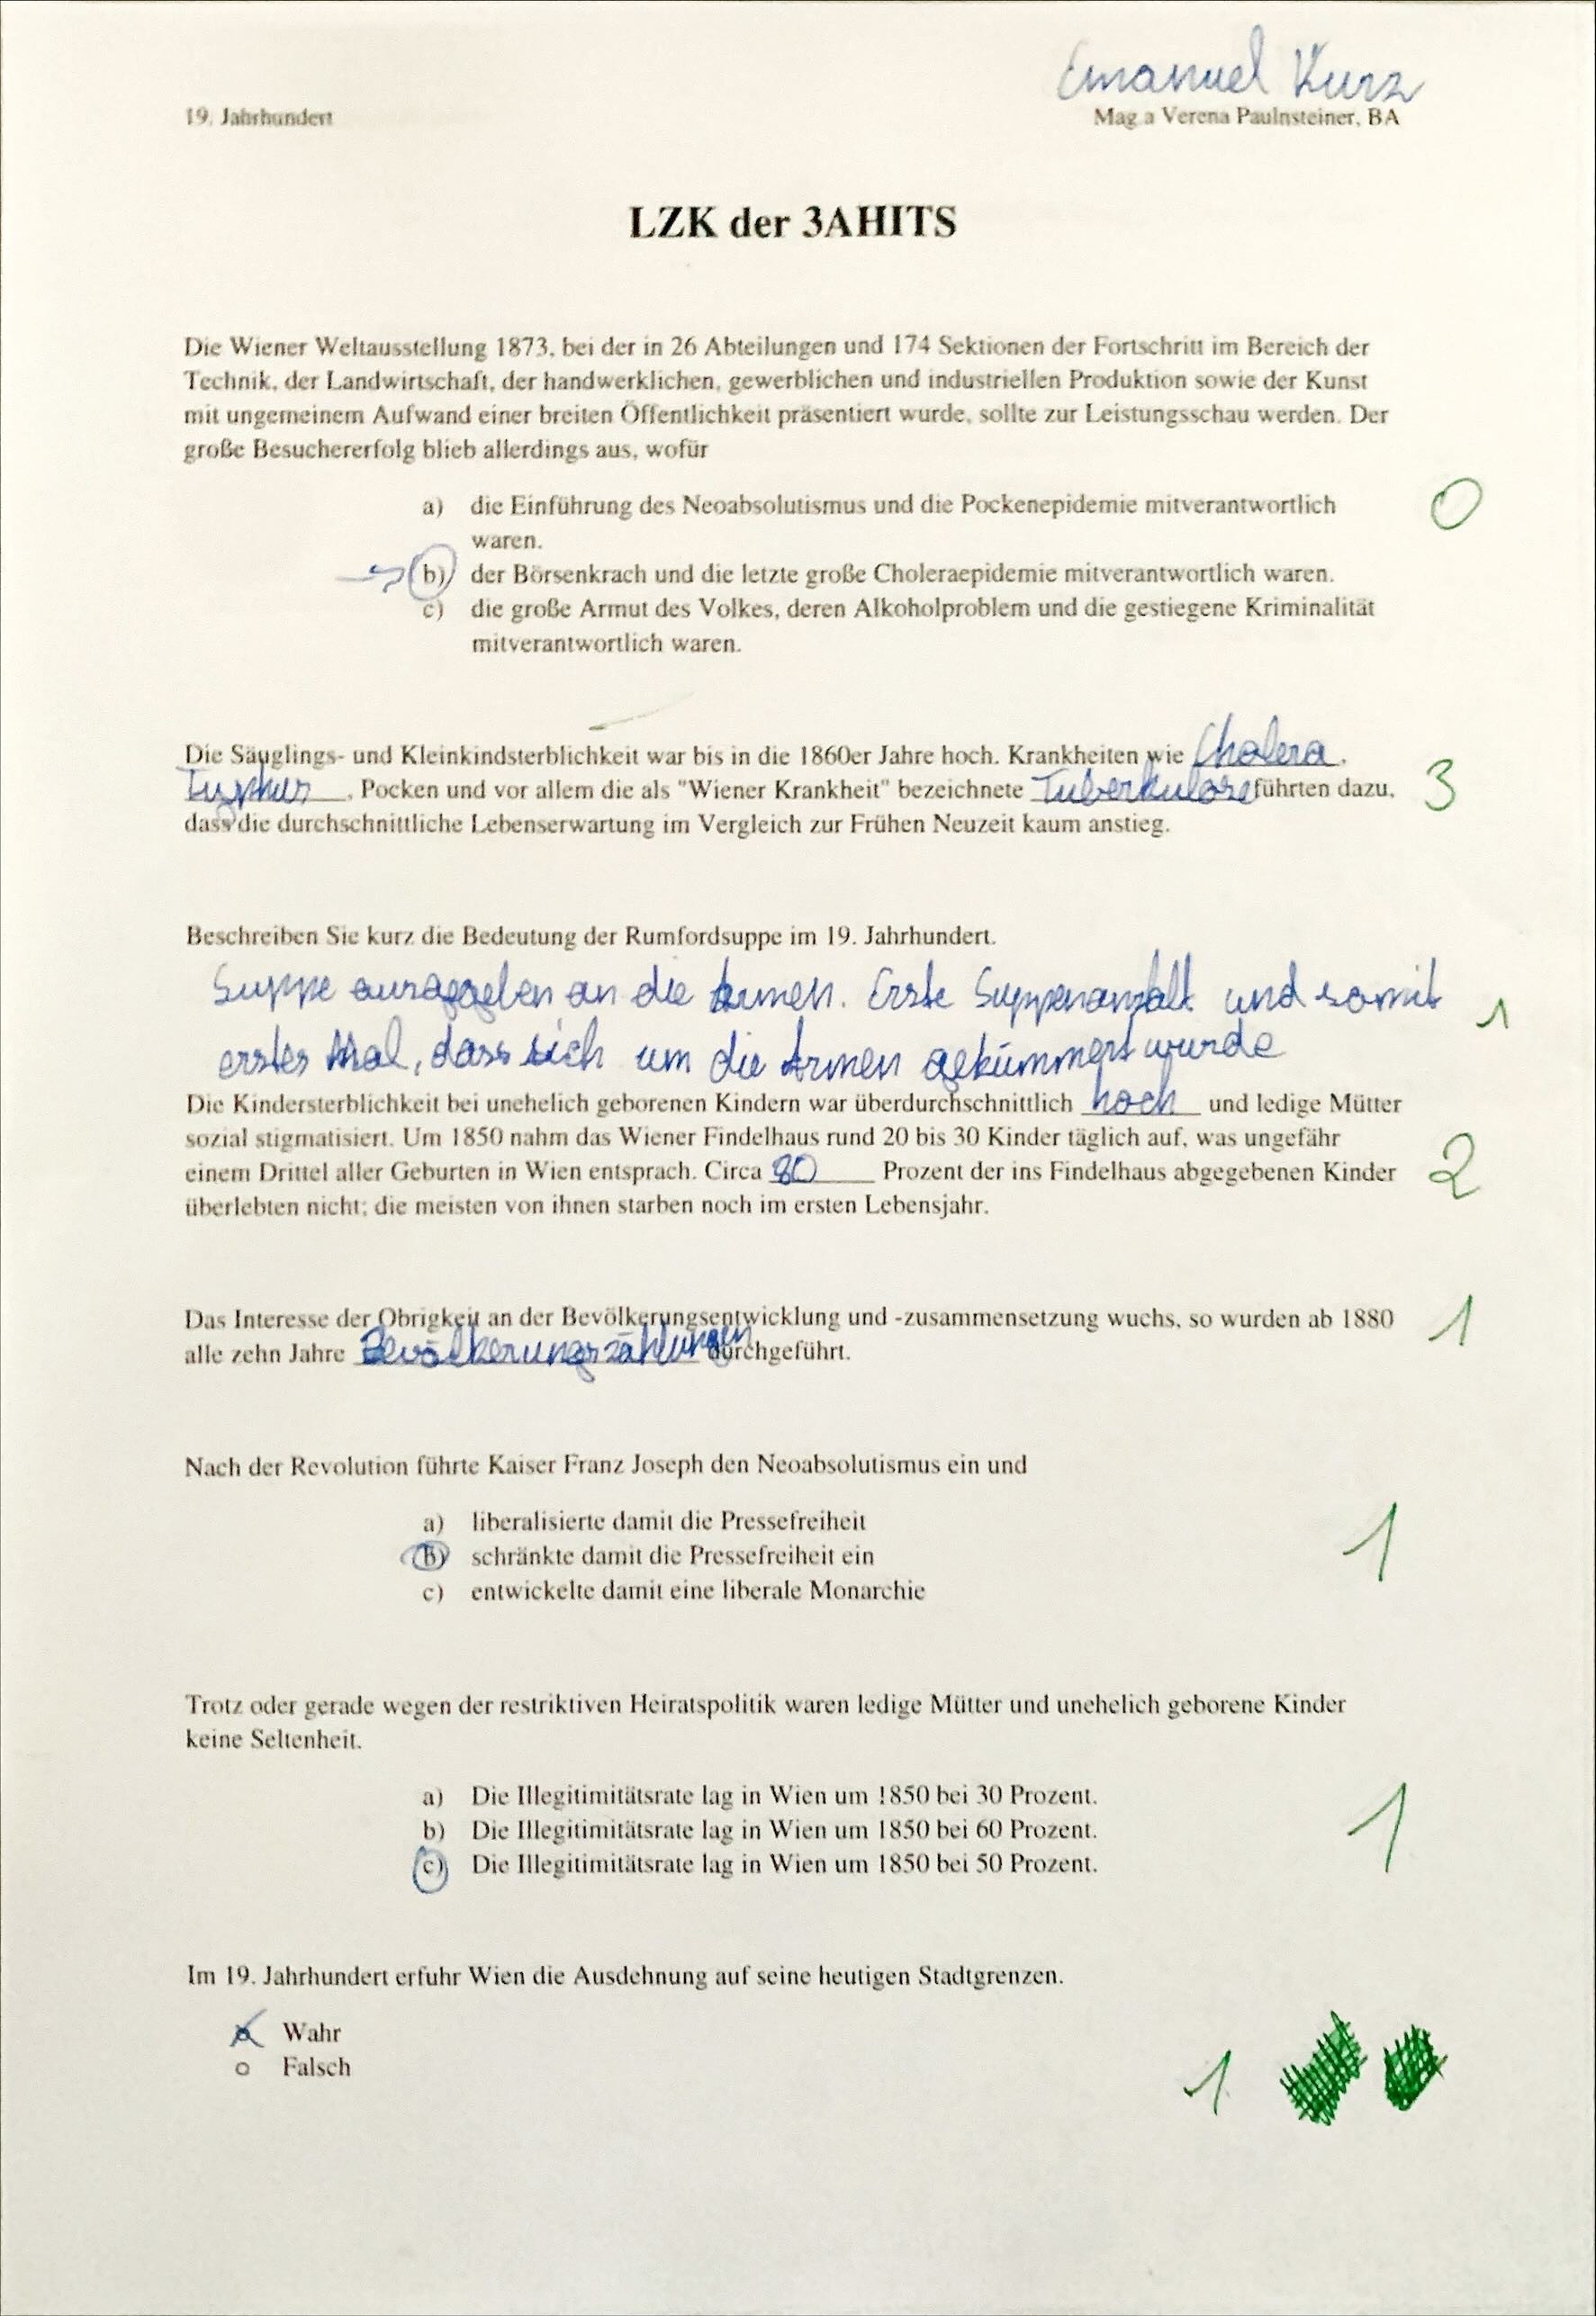 Emanuel Kurz
19. Jahrhundert
Mag.a Verena Paulnsteiner, BA
LZK der 3AHITS
Die Wiener Weltausstellung 1873, bei der in 26 Abteilungen und 174 Sektionen der Fortschritt im Bereich der
Technik, der Landwirtschaft, der handwerklichen, gewerblichen und industriellen Produktion sowie der Kunst
mit ungemeinem Aufwand einer breiten Öffentlichkeit präsentiert wurde, sollte zur Leistungsschau werden. Der
große Besuchererfolg blieb allerdings aus, wofür
a) die Einführung des Neoabsolutismus und die Pockenepidemie mitverantwortlich
waren.
0
b) der Börsenkrach und die letzte große Choleraepidemie mitverantwortlich waren.
c) die große Armut des Volkes, deren Alkoholproblem und die gestiegene Kriminalität
mitverantwortlich waren.
Die Säuglings- und Kleinkindsterblichkeit war bis in die 1860er Jahre hoch. Krankheiten wie Cholera,
Typhus, Pocken und vor allem die als "Wiener Krankheit" bezeichnete Tuberkulose führten dazu,
3
dass die durchschnittliche Lebenserwartung im Vergleich zur Frühen Neuzeit kaum anstieg.
Beschreiben Sie kurz die Bedeutung der Rumfordsuppe im 19. Jahrhundert.
Suppe ausgegeben an die Armen. Erste Suppenanstalt und somit
1
erstes Mal, dass sich um die Armen gekümmert wurde
Die Kindersterblichkeit bei unehelich geborenen Kindern war überdurchschnittlich hoch und ledige Mütter
sozial stigmatisiert. Um 1850 nahm das Wiener Findelhaus rund 20 bis 30 Kinder täglich auf, was ungefähr
einem Drittel aller Geburten in Wien entsprach. Circa 80 Prozent der ins Findelhaus abgegebenen Kinder
2
überlebten nicht; die meisten von ihnen starben noch im ersten Lebensjahr.
Das Interesse der Obrigkeit an der Bevölkerungsentwicklung und -zusammensetzung wuchs, so wurden ab 1880
1
alle zehn Jahre Bevölkerungszählungen durchgeführt.
Nach der Revolution führte Kaiser Franz Joseph den Neoabsolutismus ein und
a) liberalisierte damit die Pressefreiheit
b) schränkte damit die Pressefreiheit ein
1
c) entwickelte damit eine liberale Monarchie
Trotz oder gerade wegen der restriktiven Heiratspolitik waren ledige Mütter und unehelich geborene Kinder
keine Seltenheit.
a) Die Illegitimitätsrate lag in Wien um 1850 bei 30 Prozent.
b) Die Illegitimitätsrate lag in Wien um 1850 bei 60 Prozent.
1
c) Die Illegitimitätsrate lag in Wien um 1850 bei 50 Prozent.
Im 19. Jahrhundert erfuhr Wien die Ausdehnung auf seine heutigen Stadtgrenzen.
Wahr
Falsch
1